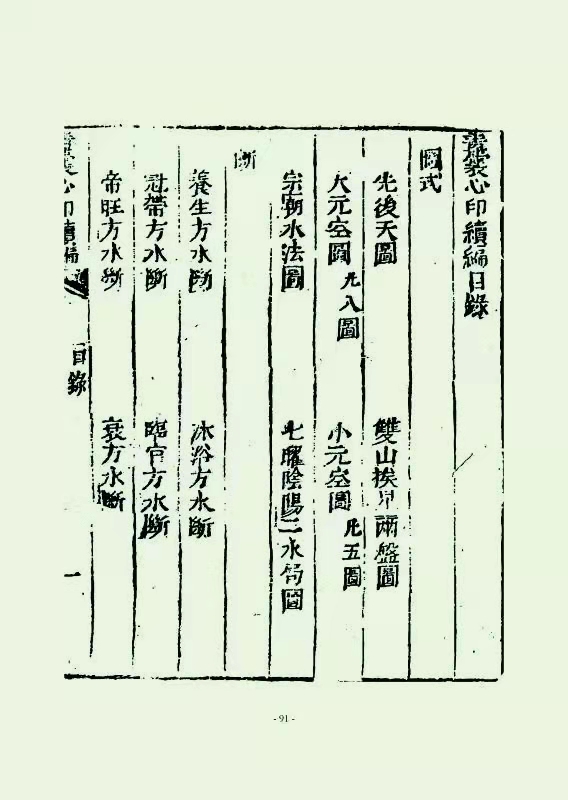 青囊心印續編目錄
圖式
先後天圖 雙山挨星兩盤圖
大元空圖 凡八圖 小元空圖 凡五圖
宗廟水法圖 七曜陰陽二水局圖
斷
養生方水斷 沐浴方水斷
冠帶方水斷 臨官方水斷
帝旺方水斷 衰方水斷
青囊心印續編 目錄 一
- 91 -